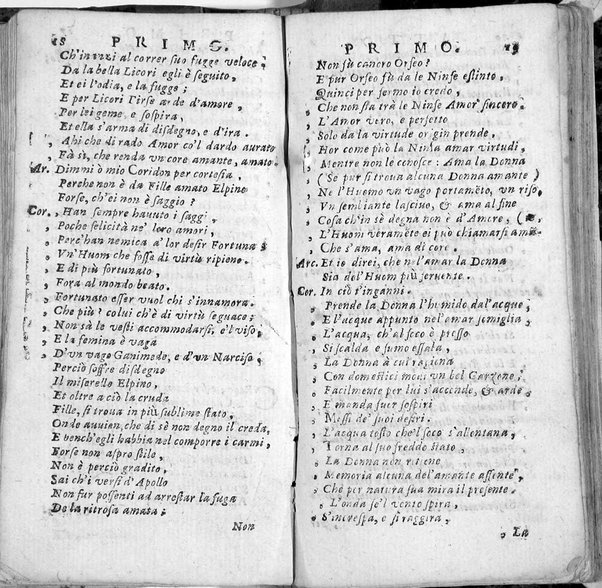 18 PRIMO.
Ch'invizi al correr suo fugge veloce,
Da la bella Licori egli è seguito,
Et ei l'odia, e la fugge;
E per Licori l'irse arde d'amore,
Per lei geme, e sospira,
Et ella s'arma di disdegno, e d'ira.
, Ahi che di rado Amor co'l dardo aurato
, Fà sì, che renda vn core amante, amato.
Ar. Dimmi ò mio Coridon per cortesia,
Perche non è da Fille amato Elpino
Forse, ch'ei non è saggio?
Cor. , Han sempre hauuto i saggi,
, Poche felicità ne' loro amori,
, Perc'han nemica a'lor desir Fortuna;
, Vn'Huom che fosse di virtù ripieno,
, E di più fortunato,
, Fora al mondo beato.
, Fortunato esser vuol chi s'innamora.
, Che più? colui ch'è di virtù seguace;
, Non sà le vesti accommodarsi, e'l viso,
, E la femina è vaga
, D'vn vago Ganimede, e d'vn Narciso,
Perciò soffre disdegno
Il miserello Elpino,
Et oltre a ciò la cruda
Fille, si troua in più sublime stato,
Onde auuien, che di sè non degno il creda,
E bench'egli habbia nel comporre i carmi,
Forse non aspro stile,
Non è perciò gradito,
Sai ch'i versi d'Apollo
Non fur possenti ad arrestar la fuga
De la ritrosa amata;
Non
PRIMO. 19
Non fù canoro Orfeo?
E pur Orfeo fù da le Ninfe estinto,
Quinci per fermo io credo,
, Che non stà trà le Ninfe Amor sincero.
, L'Amor vero, e perfetto
, Solo da la virtude origin prende,
, Hor come può la Ninfa amar virtudi,
, Mentre non le conosce: Ama la Donna
, (Se pur si troua alcuna Donna amante)
, Ne l'Huomo vn vago portaméto, vn riso,
, Vn sembiante lasciuo, & ama al fine
, Cosa ch'in sè degna non è d'Amore,
, L'Huom veraméte ei può chiamarsi amante
, Che s'ama, ama di core.
Arc. Et io direi, che ne l'amar la Donna
Sia del'Huom più feruente.
Cor. In ciò t'inganni.
, Prende la Donna l'humido dal'acque,
, E l'acque appunto nel'amar somiglia,
, L'acqua, ch'al foco è presso
, Si scalda e fumo essala,
, La Donna à cui ragiona
, Con domestici modi vn bel Garzone;
, Facilmente per lui s'accende, & arde
, E manda fuor sospiri
, Messi de' suoi desiri.
, L'acqua tosto che'l foco s'allontana,
, Torna al suo freddo stato,
, La Donna non ritiene
, Memoria alcuna del'amante assente,
, Che per natura sua mira il presente.
, L'onda se'l vento spira,
, S'increspa, e si raggira,
, La